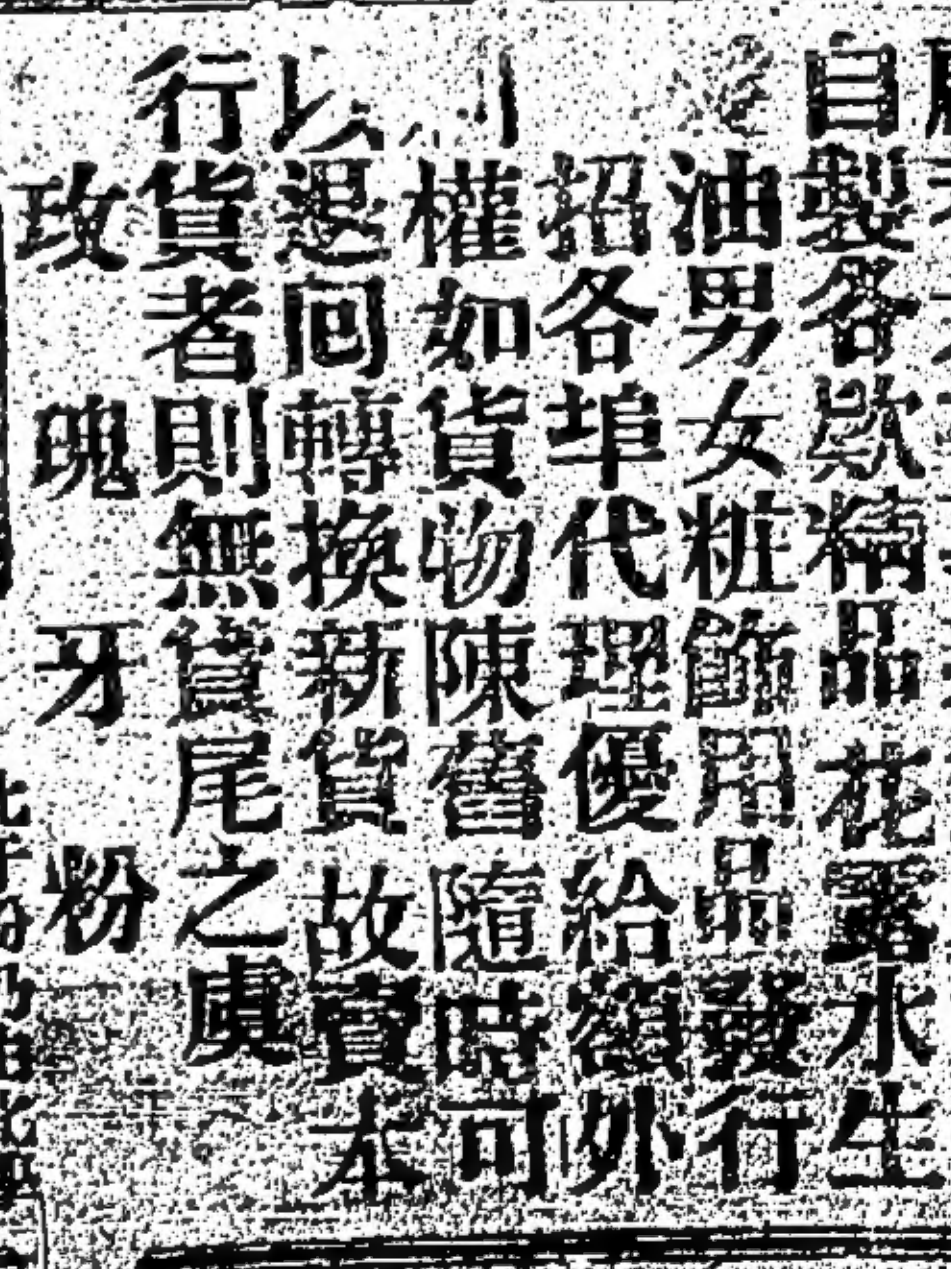 自製各欵精品花露水生
油男女粧飾用品發行
招各埠代理優給額外
權如貨物陳舊隨時可
以退囘轉換新貨故賣本
行貨者則無貨尾之虞
玫瑰牙粉